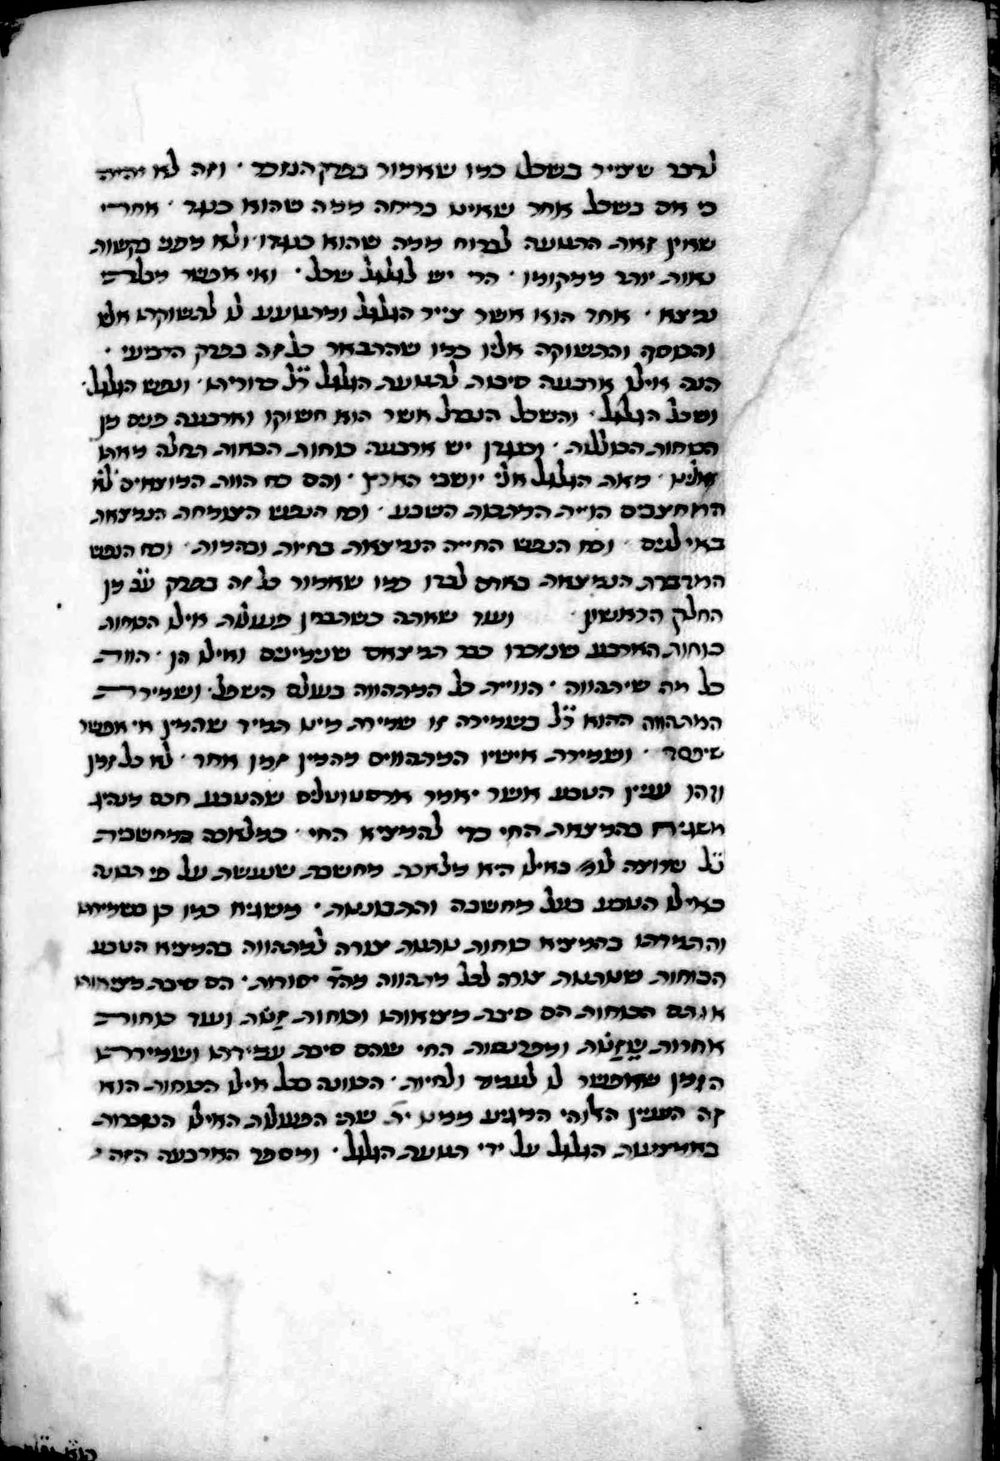 לדבר שצייר בשכל כמו שאמור בפרק הנזכר · וזה לא יהיה
כי אם בשכל אחר שאינו בריחה ממה שהוא כנגד · אחרי
שאין זאת התנועה לברוח ממה שהוא כנגדו ולא מפני בקשות
נאות יותר ממקומו · הרי יש לגלגל שכל · ואי אפשר מבלתי
נמצא · אחר הוא אשר צייר הגלגל ומתנועע לו להשתוקקו אליו
והכוסף והתשוקה אליו כמו שהתבאר כל זה בפרק הרביעי ·
הנה אילו ארבעה סיבות לתנועת הגלגל ר"ל כדוריותו · ונפש הגלגל ·
ושכל הגלגל · והשכל הנבדל אשר הוא חשוקו וארבעה פנים מן
הכוחות הכוללות · וכנגדן יש ארבעה כוחות הבאות תחלה מאתו
אלינו · מאת הגלגל אלי יושבי הארץ · והם כח הווית המוצאים ל"ל
המחצבים הויית המרכבות הטבע · וכח הנפש הצומחת הנמצאת
באילנים · וכח הנפש החייה הנמצאת בחיות ובהמות · וכח הנפש
המדברת הנמצאת באדם לבדו כמו שאמור כל זה בפרק ע"ב מן
החלק הראשון · ועוד שאתה כשתבין פעולת אילו הכוחות
כוחות הארבע שנזכרו כבר תמיצאם שנמינים ואילו הן · הווית
כל מה שיתהווה · הווייה כל המתהווה בעולם השפל · ושמירת
המתהווה ההוא ר"ל בשמירה זו שמירת מינו תמיד שהמין אי אפשר
שיפסד · ושמירת אישיו המתהווים מהמין זמן אחד · לא כל זמן
וזהו עניין הטבע אשר יאמר ארסטוטליס שהטבע חכם מנהיג
משגיח בהמצאת החי כדי להמציא החי · כמלאכה במחשבית
ר"ל שרוצה לומ' כאילו היא מלאכת מחשבת שנעשת על פי תבונה
כאילו הטבע בעל מחשבה והתבוננות · משגיח כמו כן בשמירתו
והתמדתו בהמציא כוחות נותנות צורה למתהווה בהמציא הטבע
הכוחות שנותנות צורה לכל מתהווה מהד' יסודות · הם סיבת מציאותו
אותם הכוחות הם סיבת מציאותו וכוחות זנות ועוד כוחות
אחרות שזנות ומפרנסות החי שהם סיבת עמידתו ושמירתו
הזמן שאפשר לו לעמוד ולחיות · הכוונה בכל אילו הכוחות הוא
זה העניין האלהי המגיע ממנו ית' שתי הפעולות האילו הנזכרות
באמצעות הגלגל על ידי תנועת הגלגל · ומספר הארבעה הזה